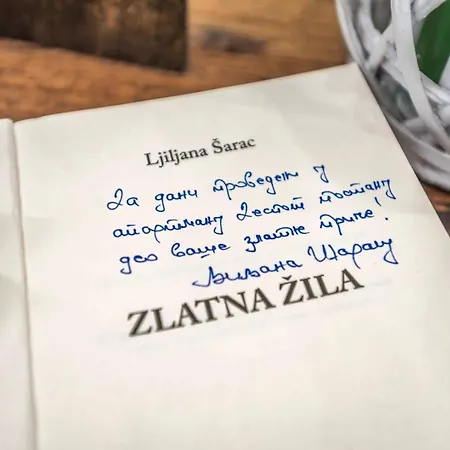 Ljiljana Šarac
Да дани проведени у
апартману Zестот постану
део ваше златне приче!
Љиљана Шарац
ZLATNA ŽILA